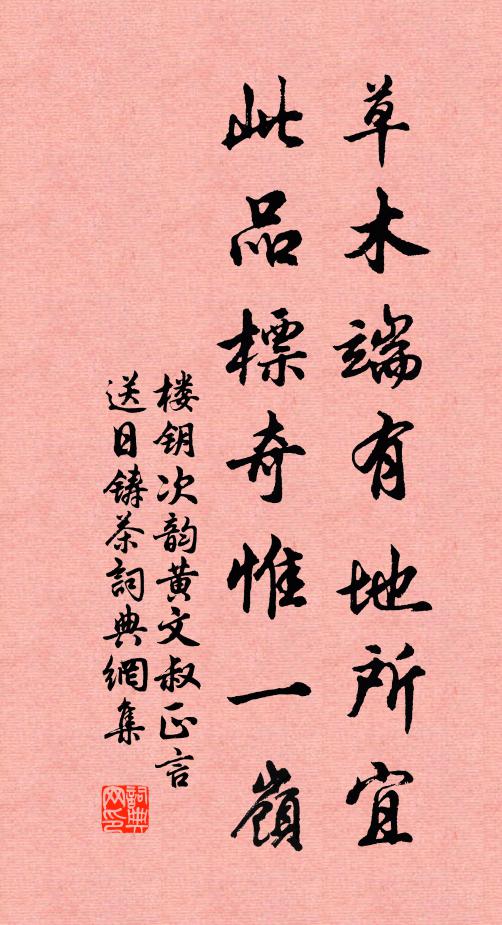 草木端有地所宜
此品標奇惟一嶺
楼钥次韵黄文叔正言
送日鋳茶詞典網集
詞典网印